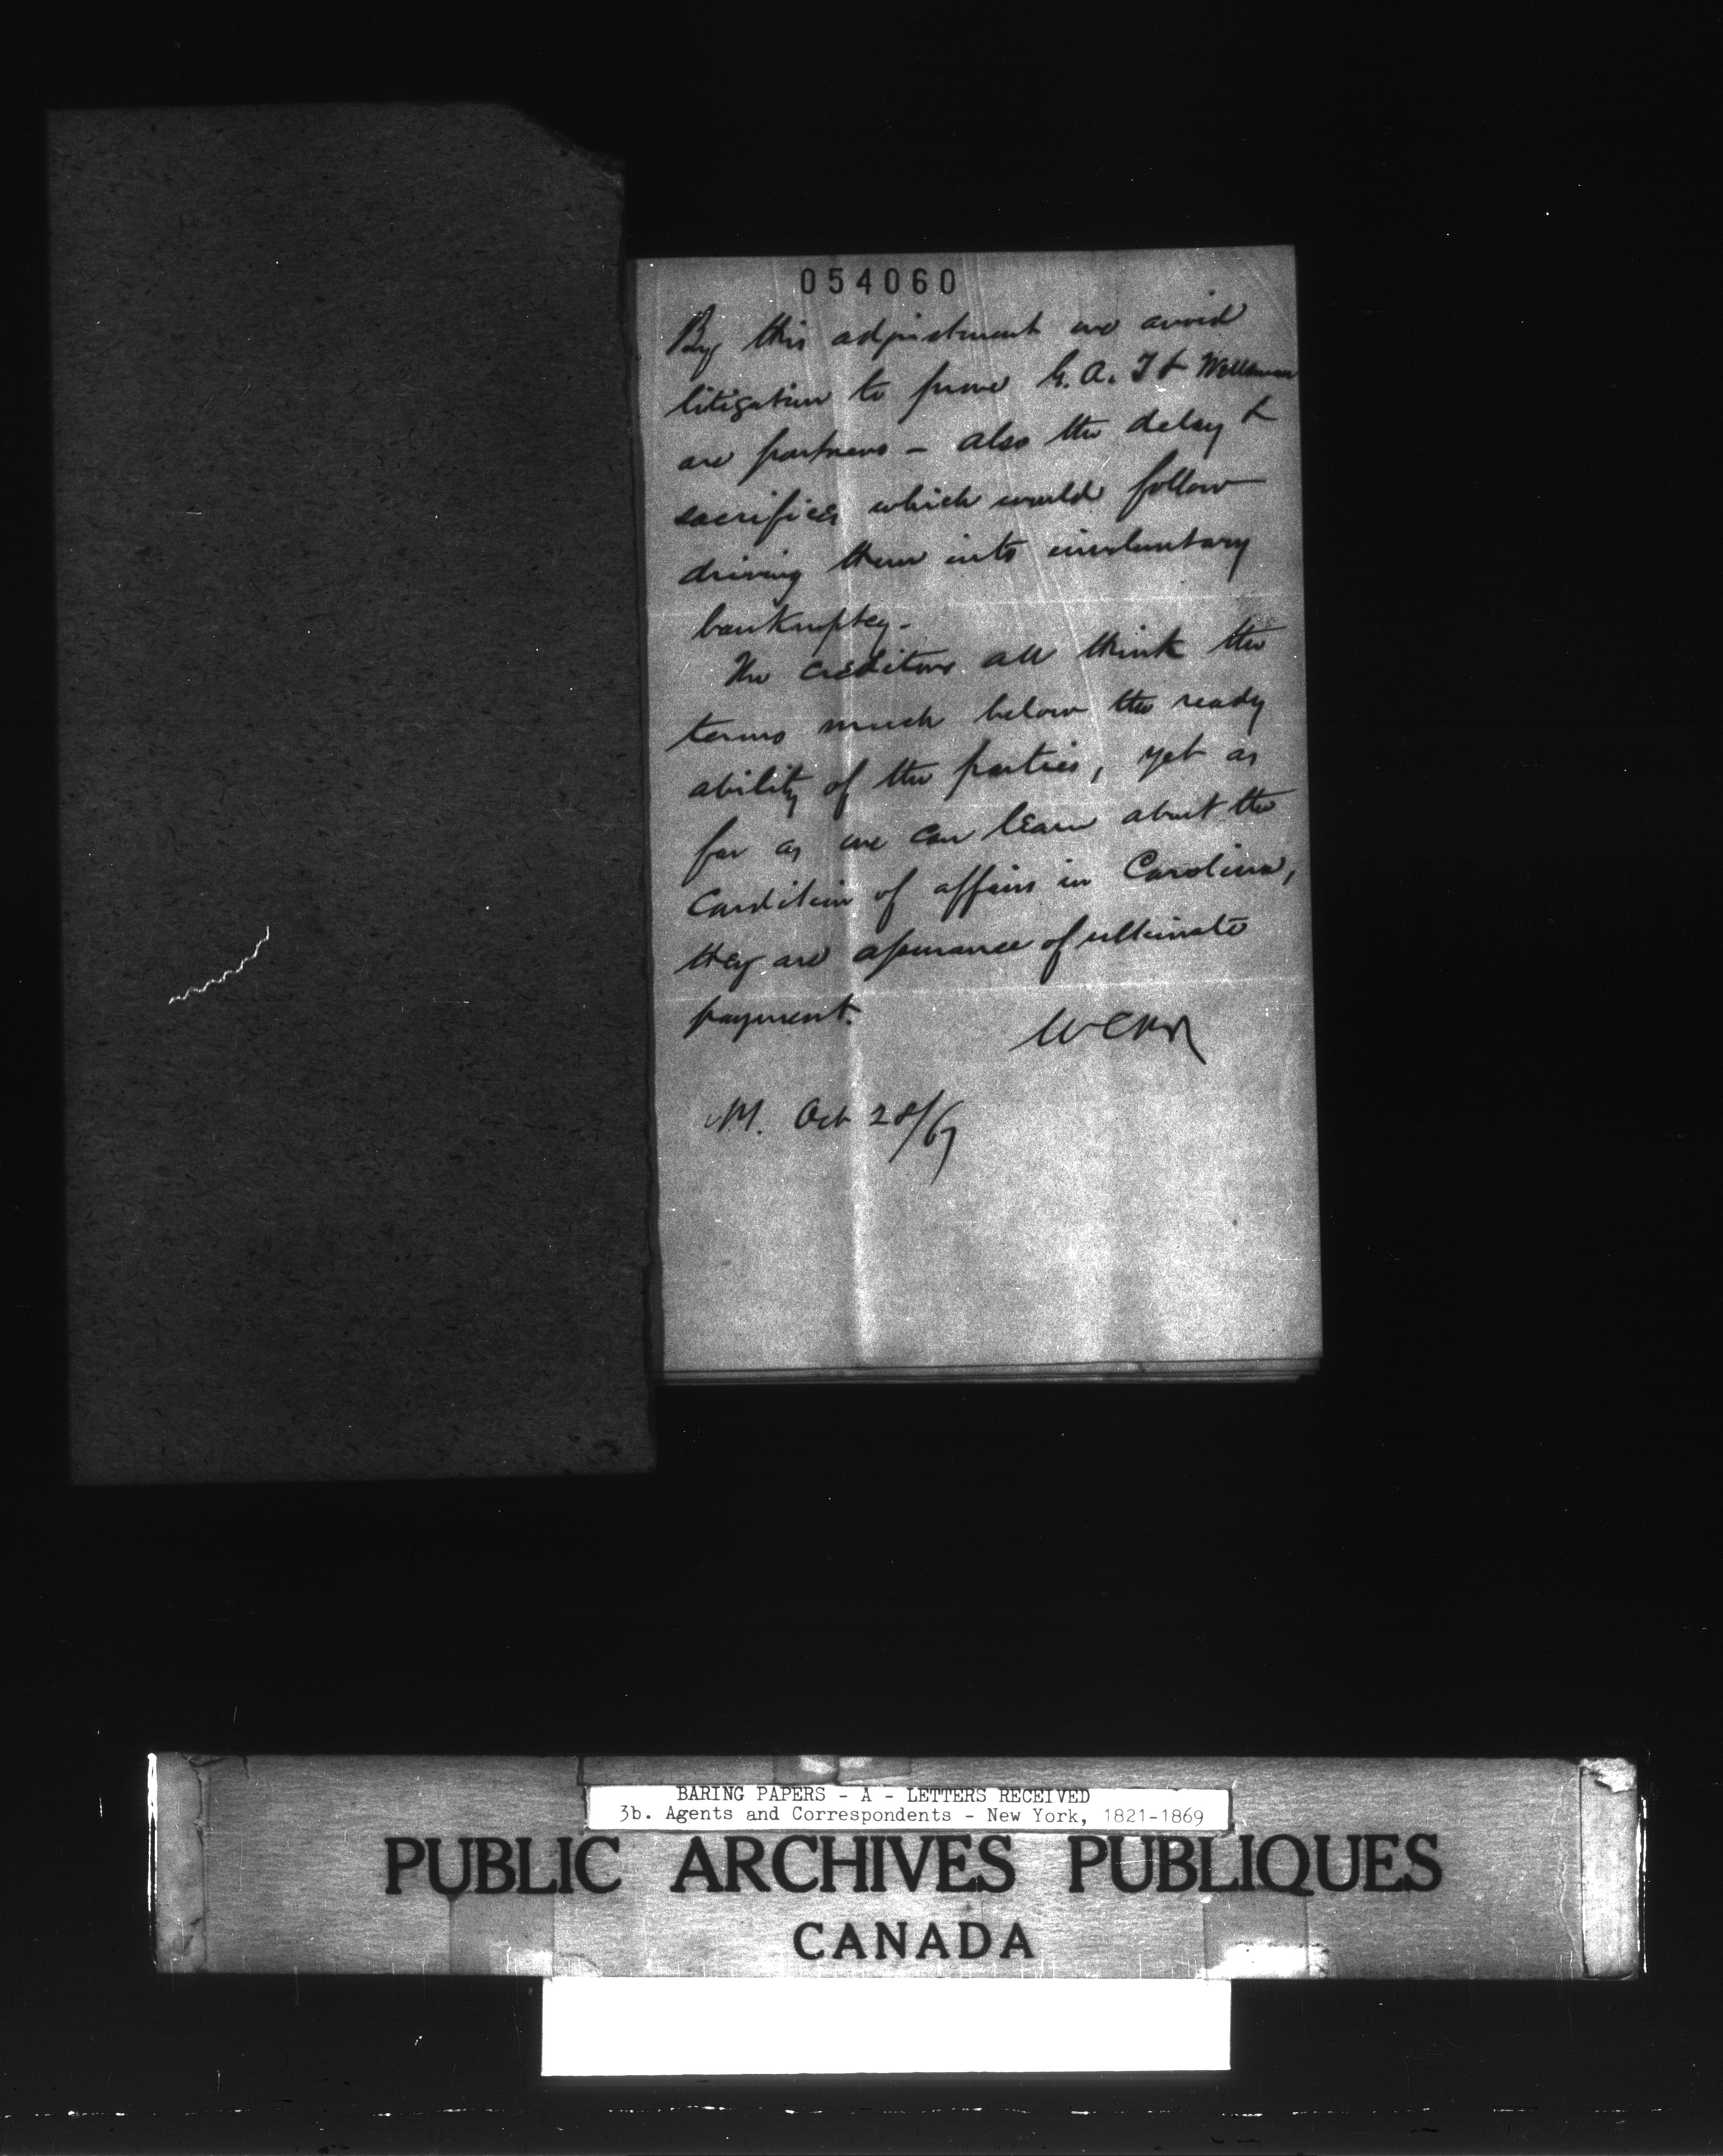 054060
By this adjustment we avoid
litigation to prove G. A. T &
are partners - also the delay &
sacrifices which would follow
driving them into involuntary
bankruptcy.
The creditors all think the
terms much below the ready
ability of the parties, yet as
far as we can learn about the
Condition of affairs in Carolina,
they are assurance of ultimate
payment.
M. Oct 28/67
BARING PAPERS - A - LETTERS RECEIVED
3b. Agents and Correspondents - New York, 1821-1869
PUBLIC ARCHIVES PUBLIQUES
CANADA